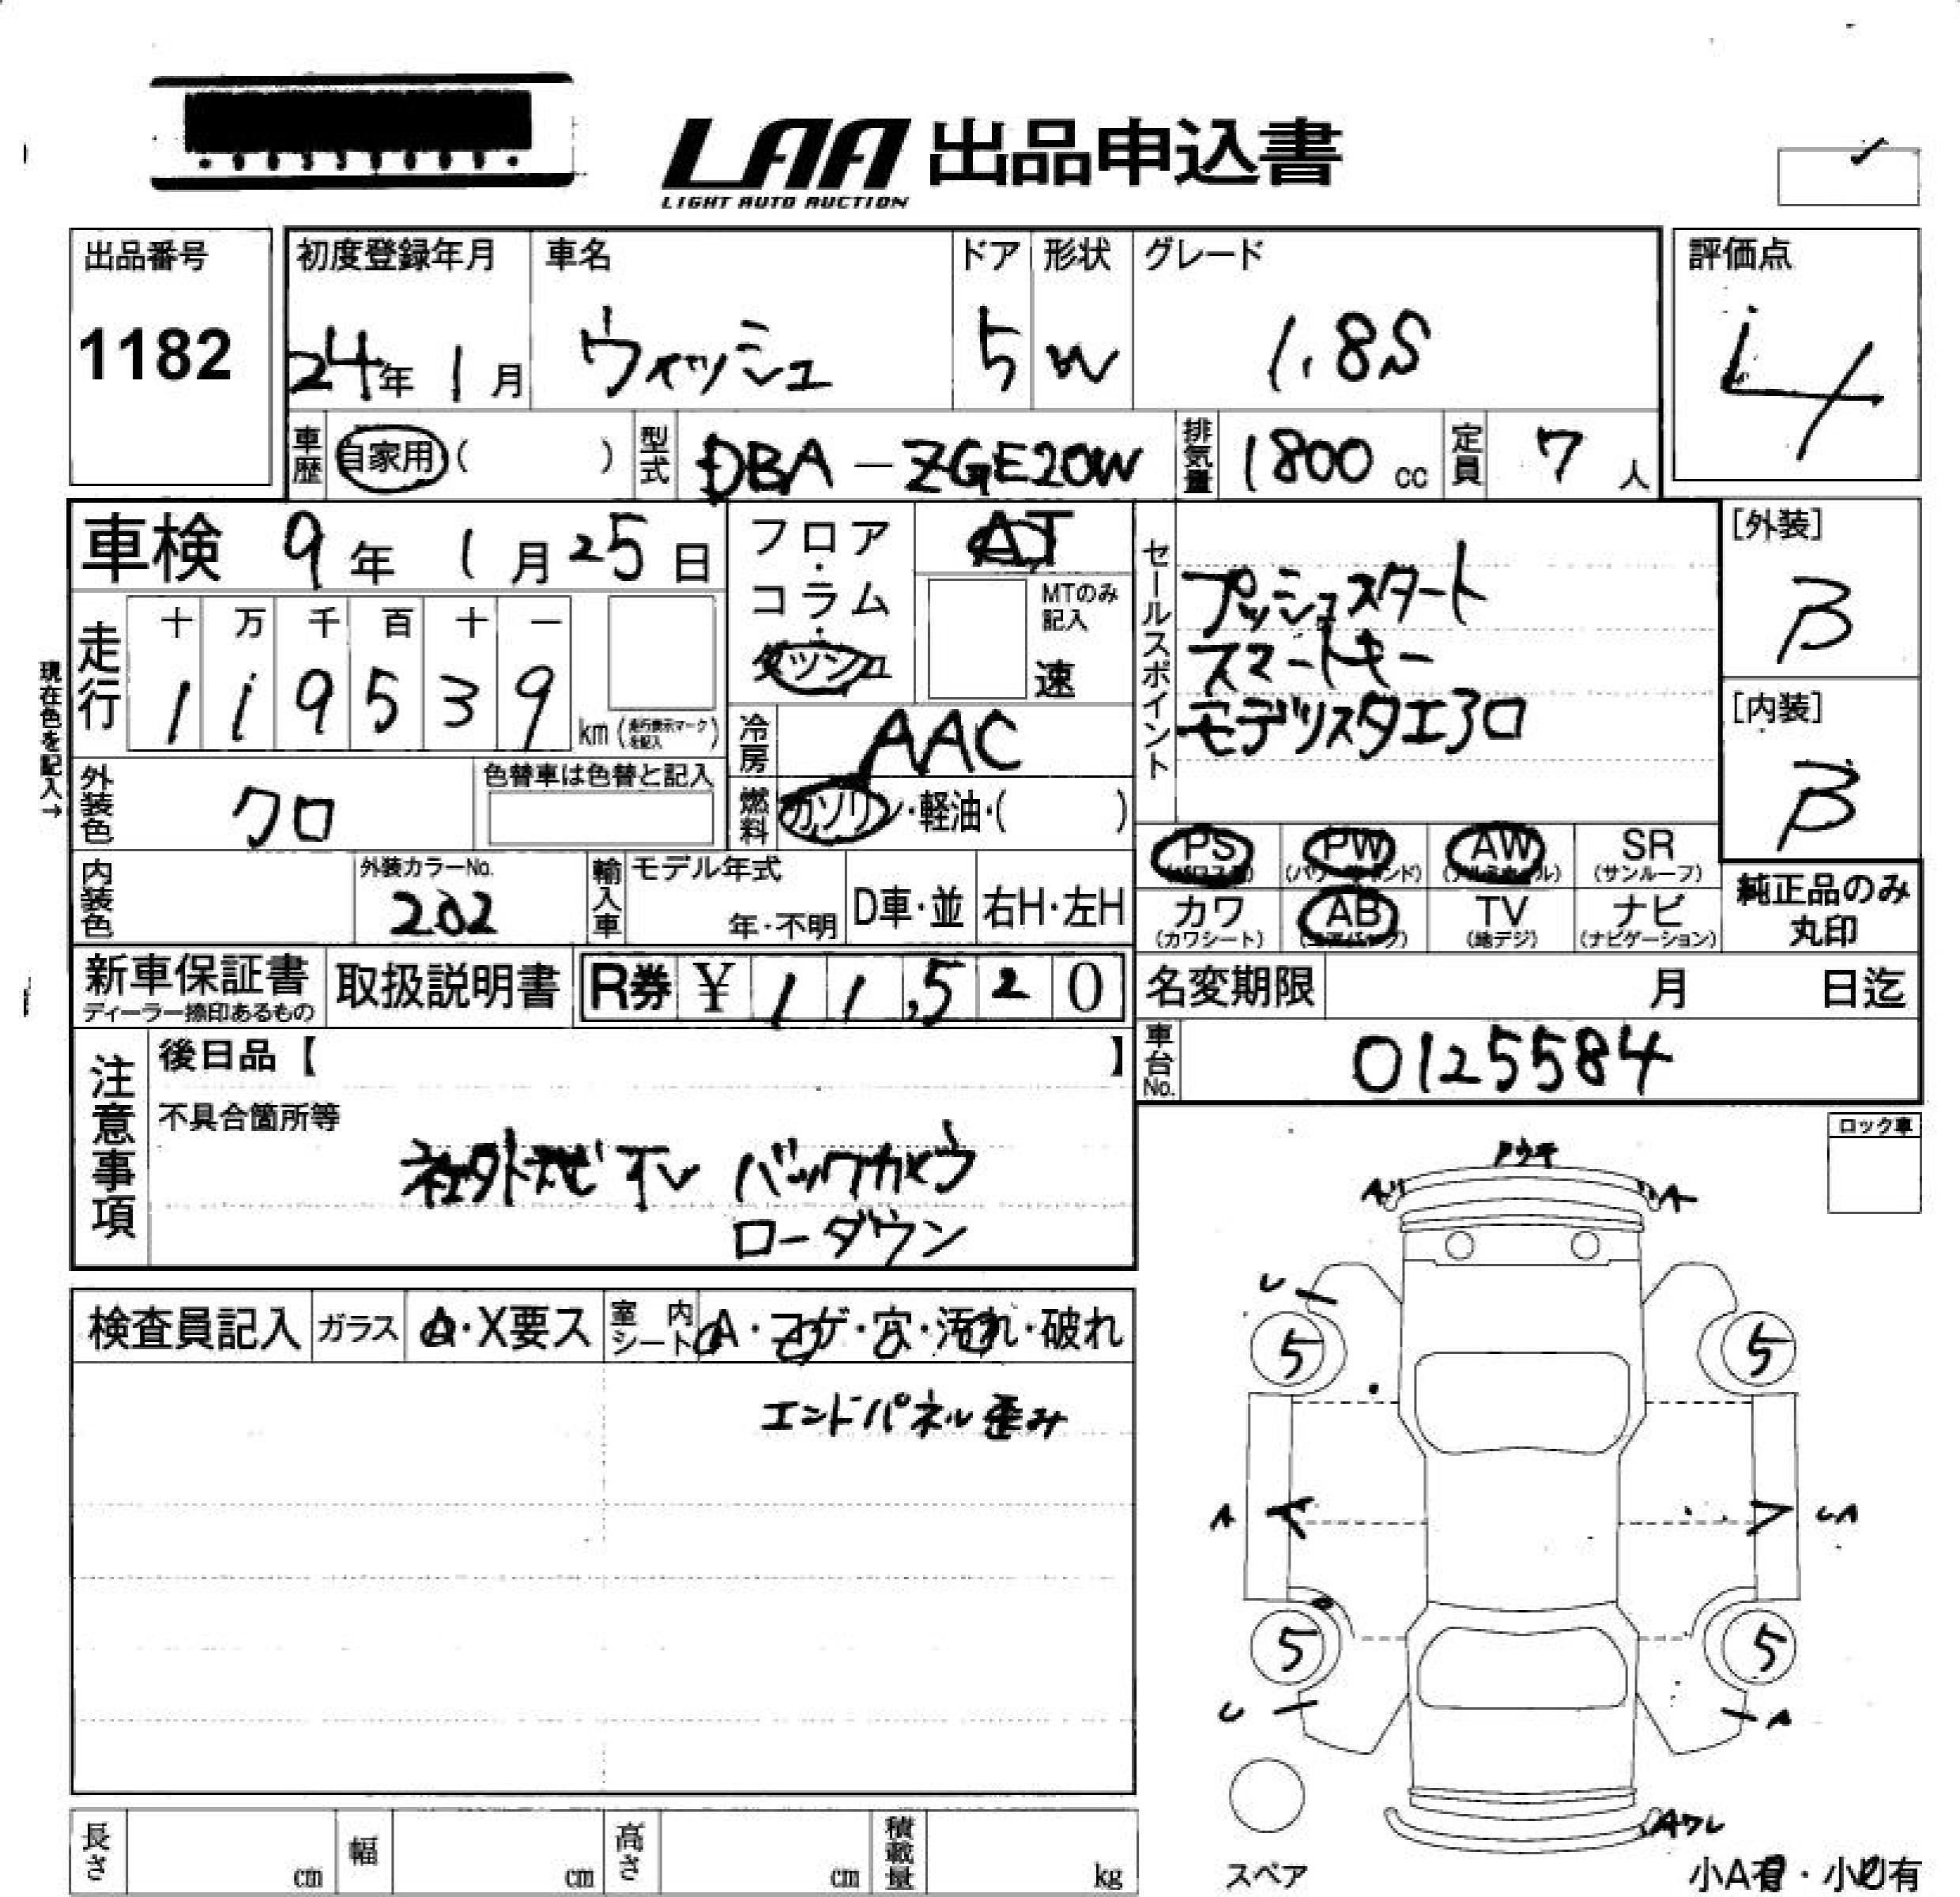 LAA 出品申込書
LIGHT AUTO AUCTION
出品番号
1182
初度登録年月 車名 ドア 形状 グレード
24年 1月 ウィッシュ 5 W 1.8S
評価点
4
車歴 自家用 ( ) 型式 DBA-ZGE20W 排気量 1800 cc 定員 7 人
車検 9年 1月 25日
フロア・コラム・ダッシュ
AT
MTのみ記入
速
走行 十 万 千 百 十 一
1 1 9 5 3 9 km (走行表示マークを記入)
現在色を記入→
セールスポイント
プッシュスタート
スマートキー
モデリスタエアロ
[外装]
B
[内装]
B
冷房 AAC
外装色 クロ 色替車は色替と記入
燃料 ガソリン・軽油・( )
PS PW AW SR
(パワーウィンド) (アルミホイル) (サンルーフ)
カワ AB TV ナビ
(カワシート) (エアバック) (地デジ) (ナビゲーション)
純正品のみ
丸印
内装色 外装カラーNo. 202 輸入車 モデル年式 年・不明 D車・並 右H・左H
新車保証書 取扱説明書 R券 ¥ 11,520
ディーラー捺印あるもの
名変期限 月 日迄
車台No. 0125584
注意事項
後日品【 】
不具合箇所等
社外ナビ TV バックカメラ
ローダウン
ロック車
検査員記入 ガラス A・X要ス 室内シート A・コゲ・穴・汚れ・破れ
エンドパネル歪み
A A
U
5 5
A UA
5 5
U A
Aワレ
スペア
小A有・小U有
長さ cm 幅 cm 高さ cm 積載量 kg